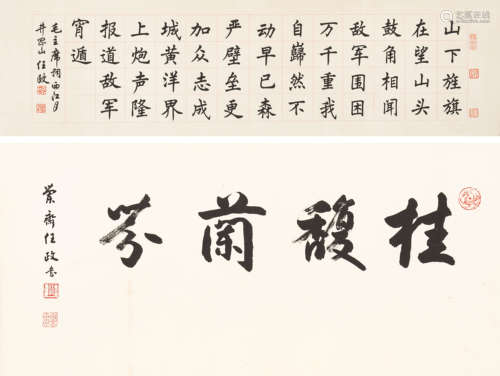 山下旌旗
在望山头
鼓角相闻
敌军围困
万千重我
自巋然不
动早已森
严壁垒更
加众志成
城黄洋界
上炮声隆
报道敌军
宵遁
毛主席词西江月
井冈山任政
桂馥蘭芬
齋任政书